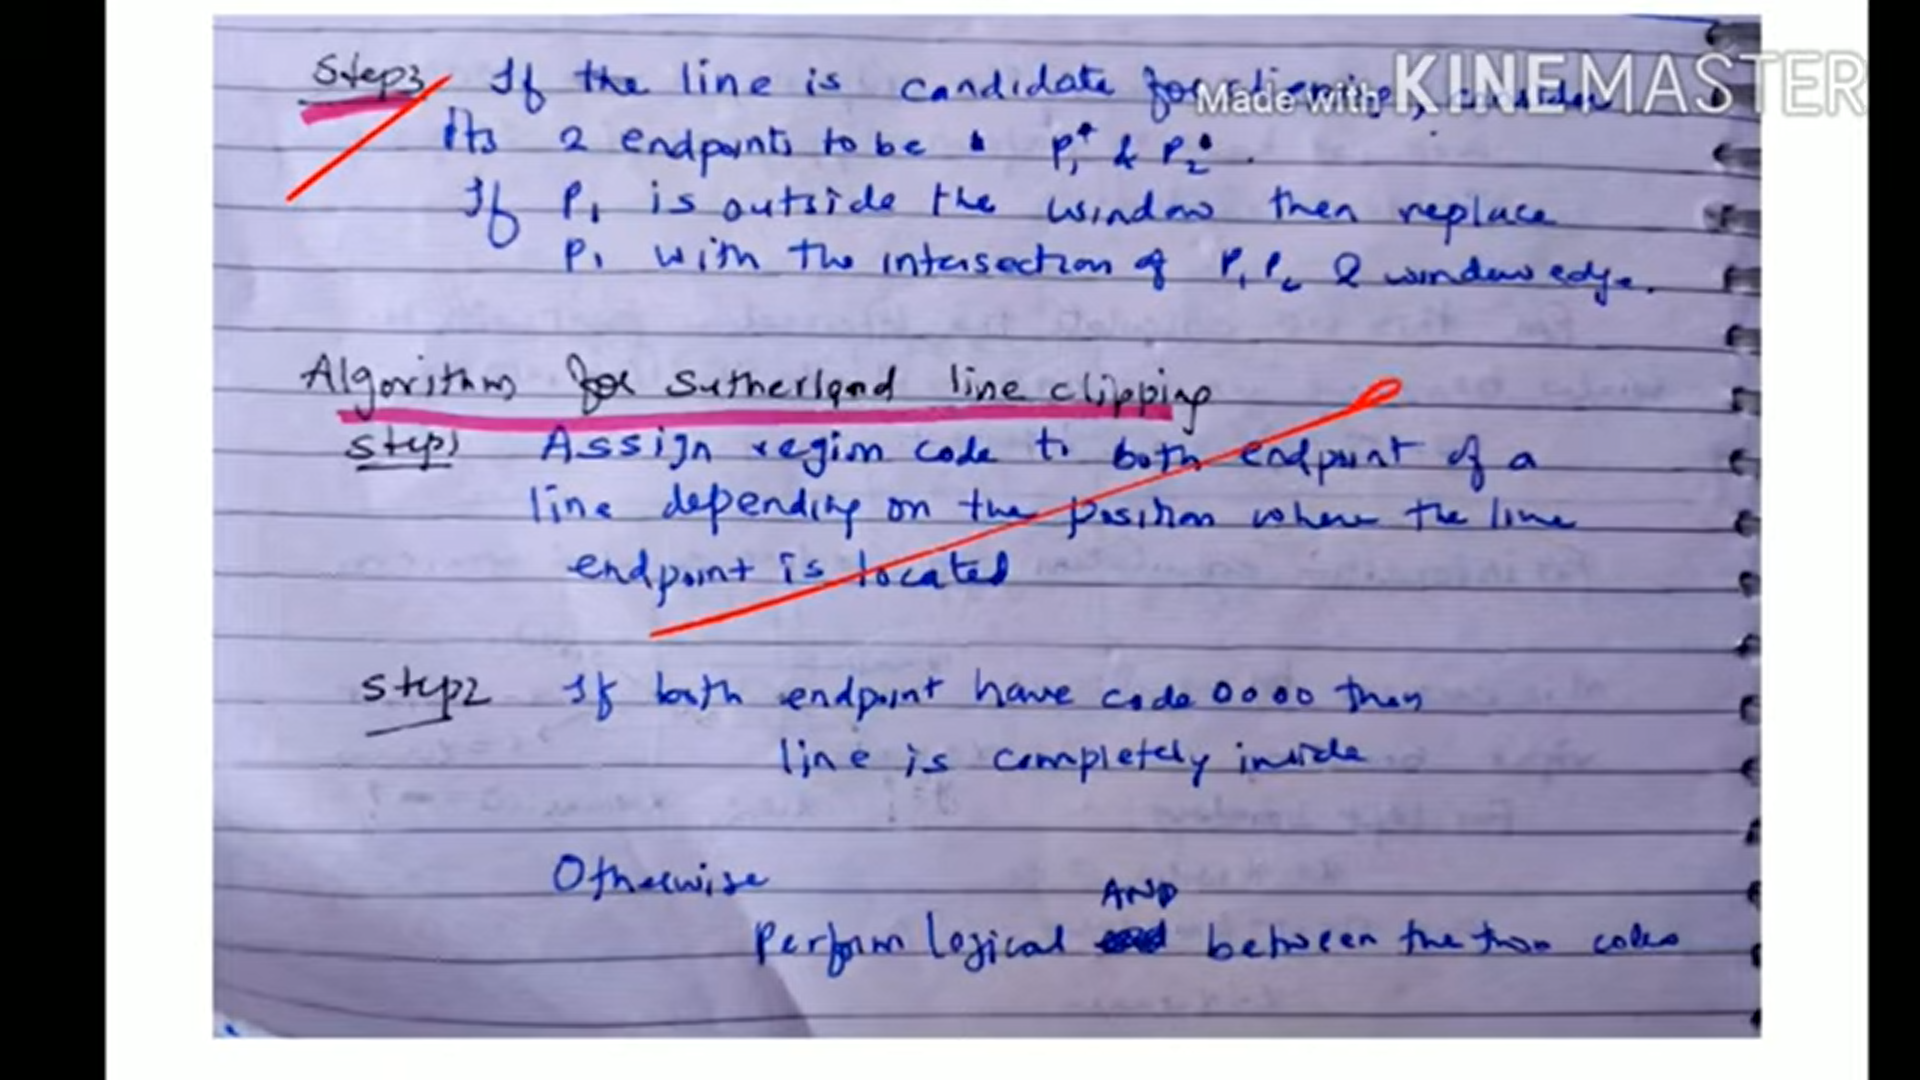 Step3 If the line is candidate for clipping, consider
Made with KINEMASTER
its 2 endpoints to be P1 & P2.
If P1 is outside the window then replace
P1 with the intersection of P1P2 & window edge.
Algorithm for Sutherland line clipping
Step1 Assign region code to both endpoint of a
line depending on the position where the line
endpoint is located
Step2 If both endpoint have code 0000 then
line is completely inside
Otherwise
AND
Perform logical between the two codes